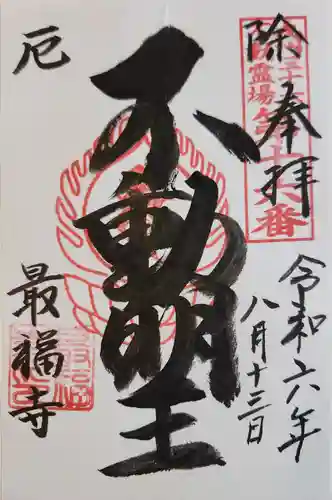 奉拝
令和六年
八月十三日
除
厄
不動明王
最福寺
霊場
第十六番